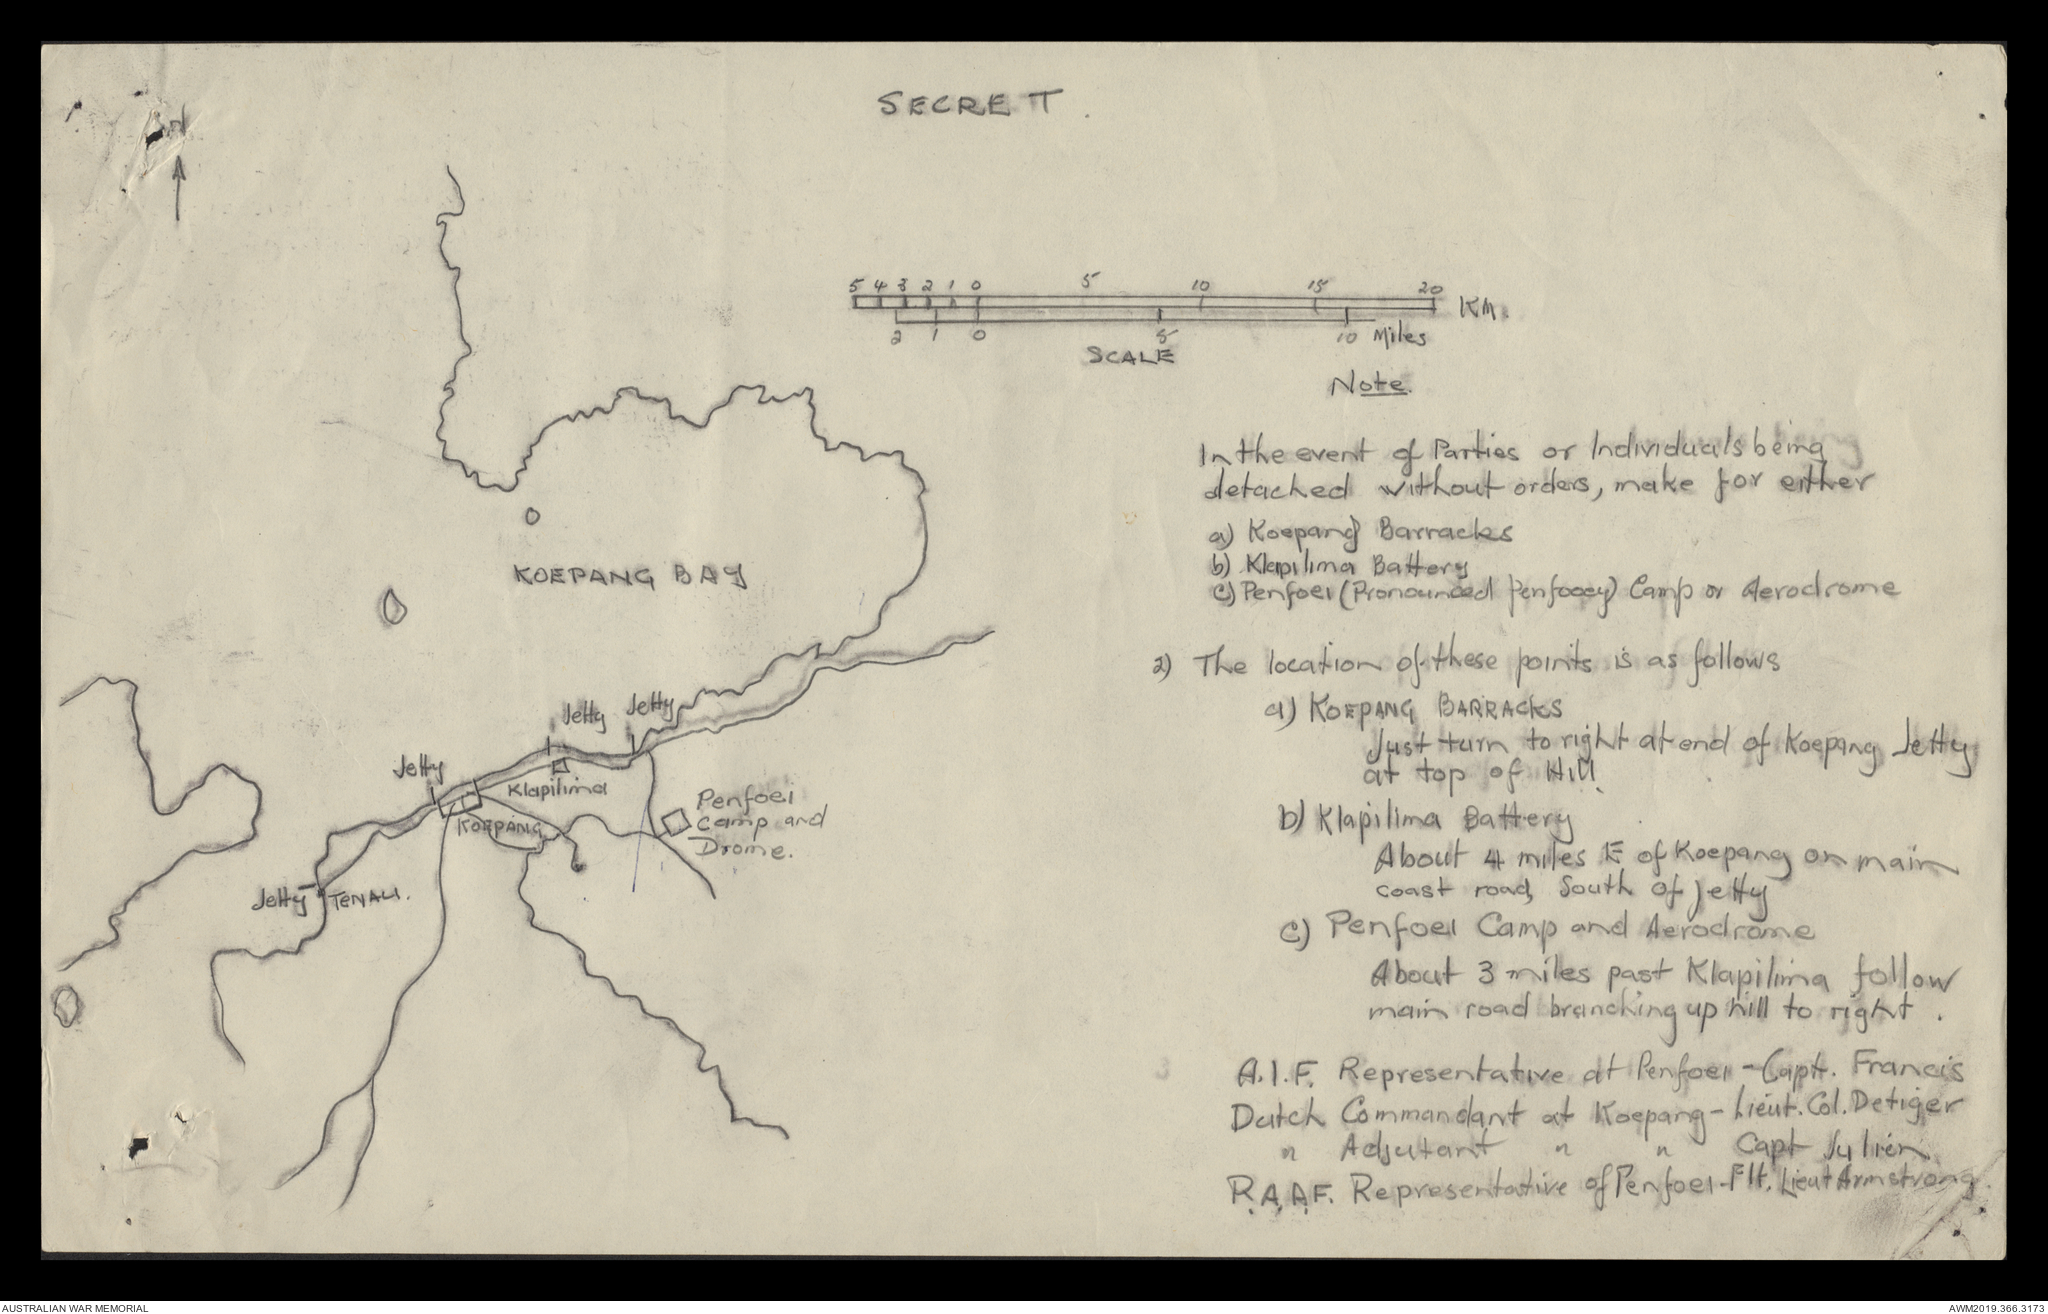 SECRET
N
5 4 3 2 1 0 5 10 15 20 KM.
2 1 0 5 10 Miles
SCALE
Note.
In the event of Parties or Individuals being
detached without orders, make for either
a) Koepang Barracks
b) Klapilima Battery
c) Penfoei (Pronounced Penfooey) Camp or Aerodrome
2) The location of these points is as follows
a) KOEPANG BARRACKS
Just turn to right at end of Koepang Jetty
at top of Hill.
b) Klapilima Battery
About 4 miles E of Koepang on main
coast road, South of Jetty
c) Penfoei Camp and Aerodrome
About 3 miles past Klapilima follow
main road branching up hill to right.
A.I.F. Representative at Penfoei - Capt. Francis
Dutch Commandant at Koepang - Lieut. Col. Detiger
" Adjutant " " Capt Julien
R.A.A.F. Representative of Penfoei - Flt. Lieut Armstrong.
KOEPANG BAY
Jetty
Jetty
Jetty
Klapilima
KOEPANG
Penfoei
Camp and
Drome.
Jetty
TENAU.
AUSTRALIAN WAR MEMORIAL
AWM2019.366.3173